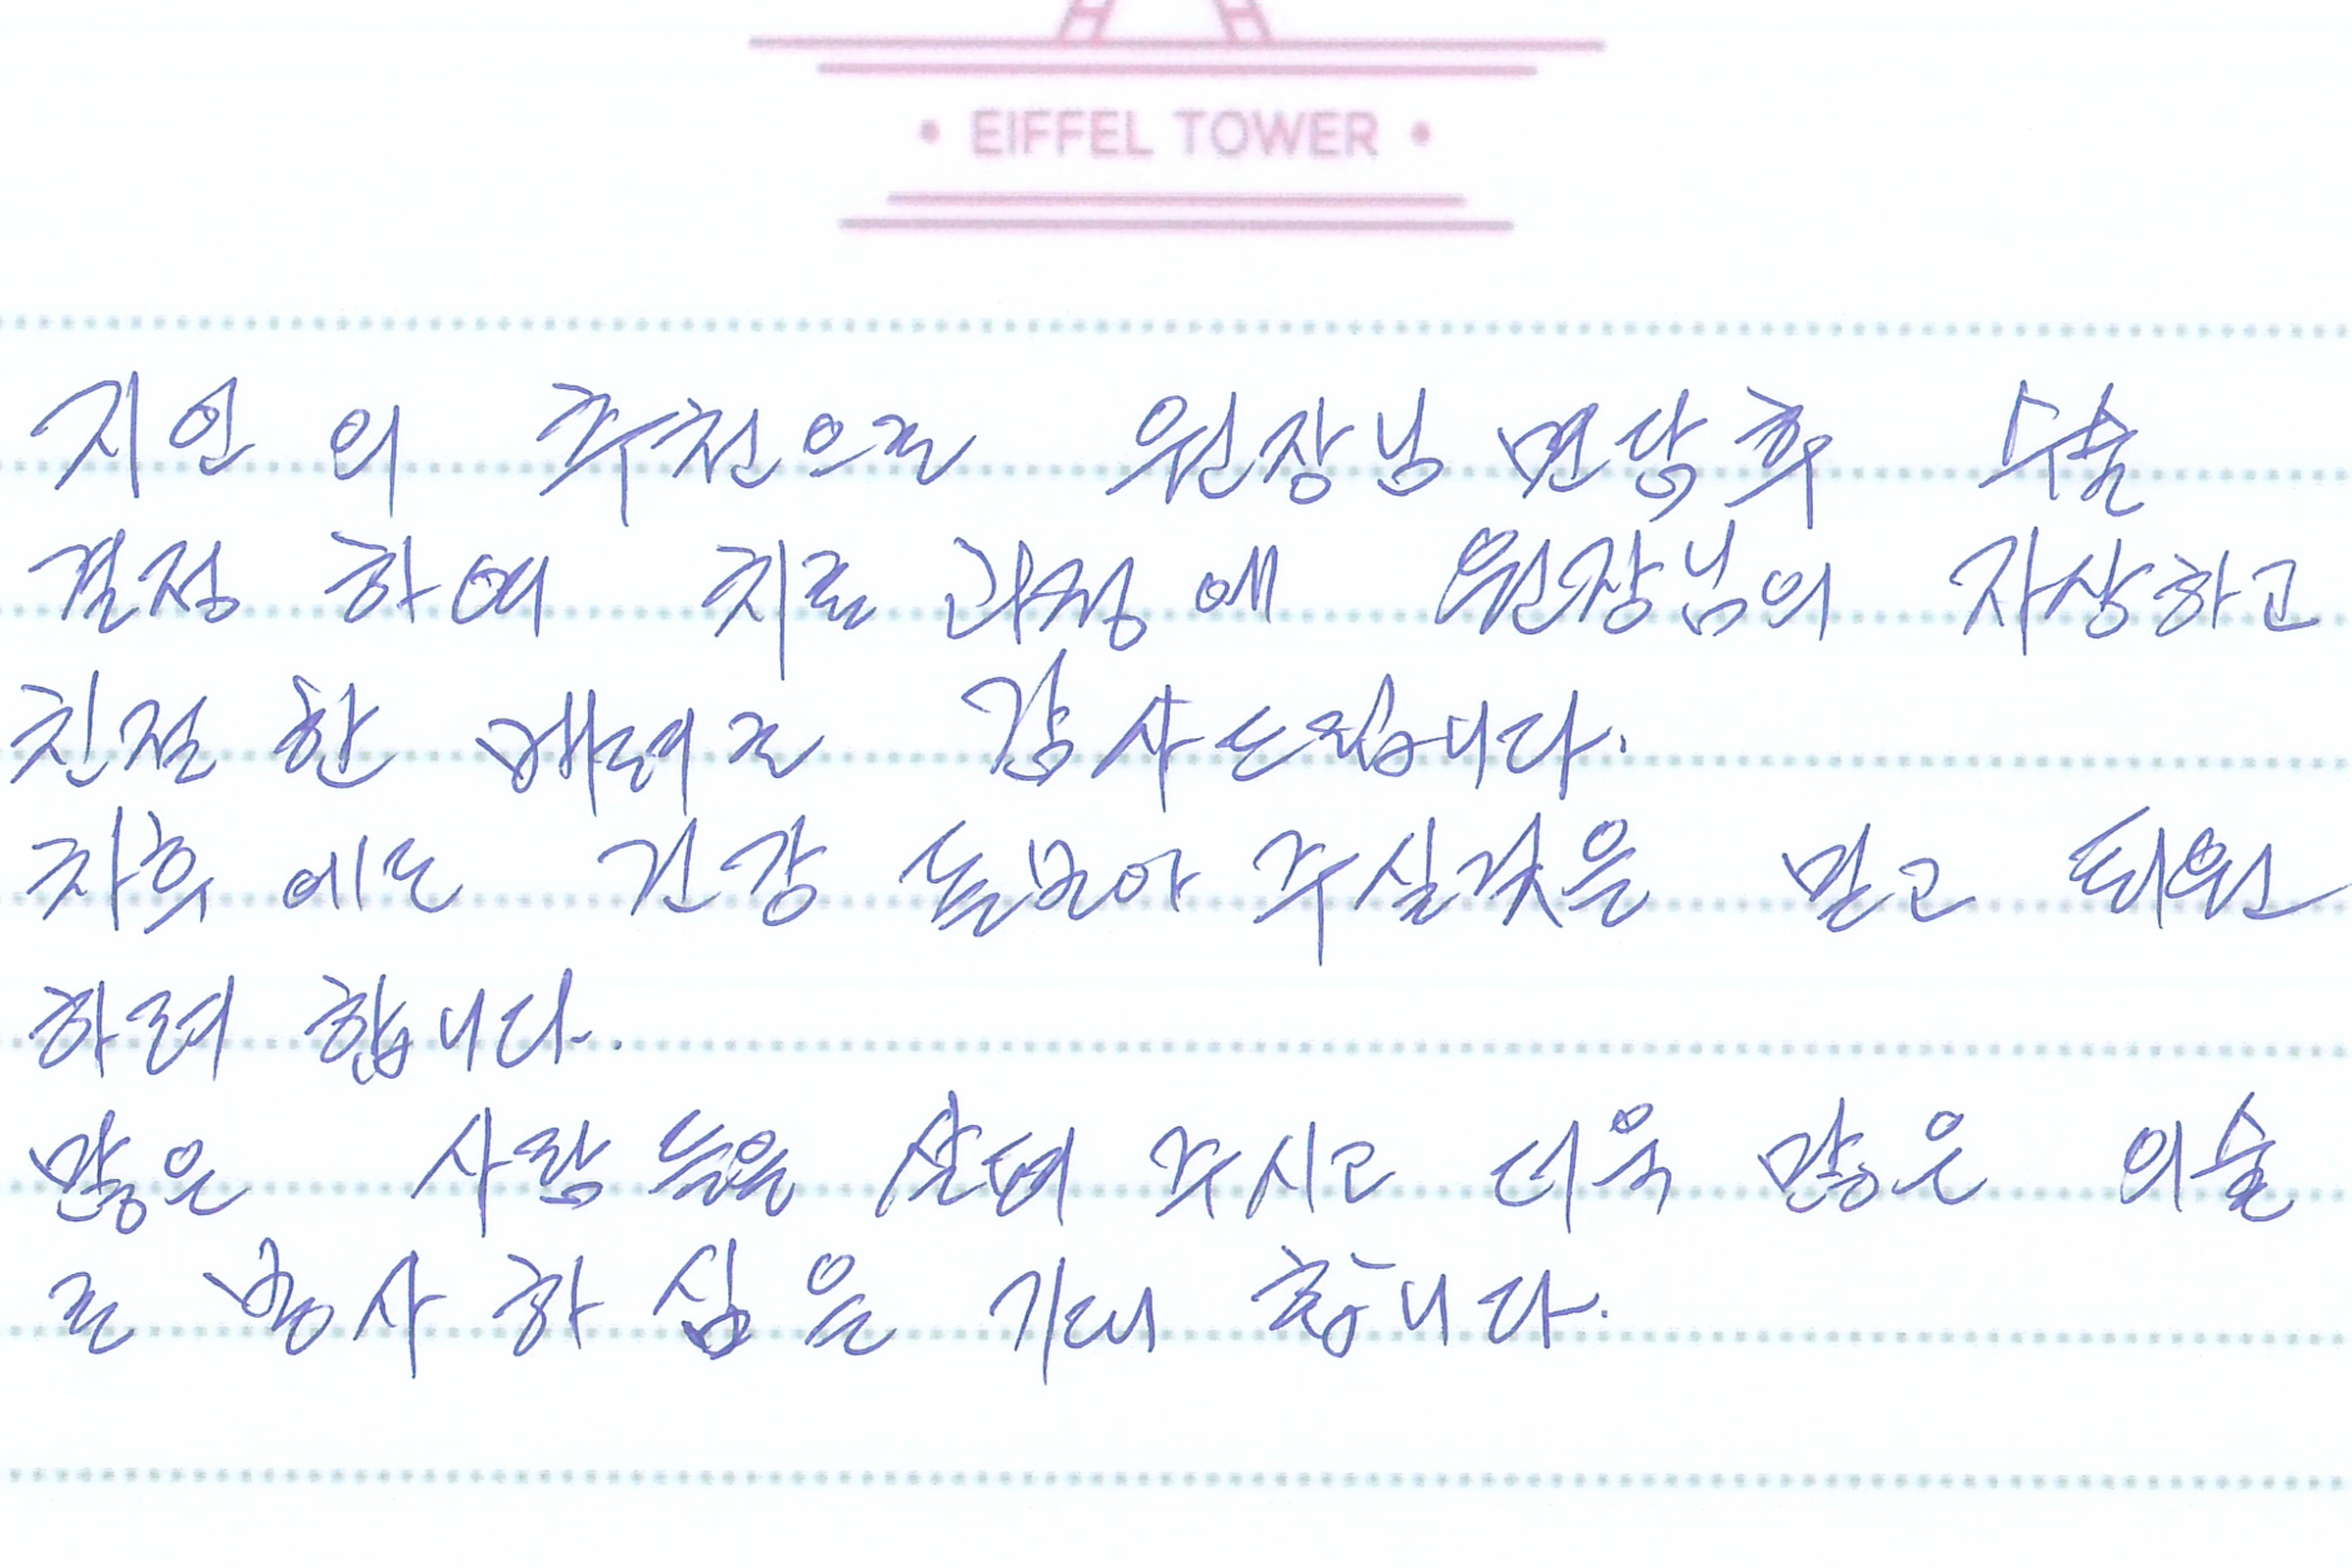 • EIFFEL TOWER •
지인의 추천으로 원장님 면담후 수술
결정 하여 치료 과정에 원장님의 자상하고
친절 한 배려로 감사드립니다.
차후 에도 건강 돌보아 주실것을 믿고 퇴원
하려 합니다.
많은 사람들을 살펴 주시고 더욱 많은 의술
로 봉사 하심을 기대 합니다.